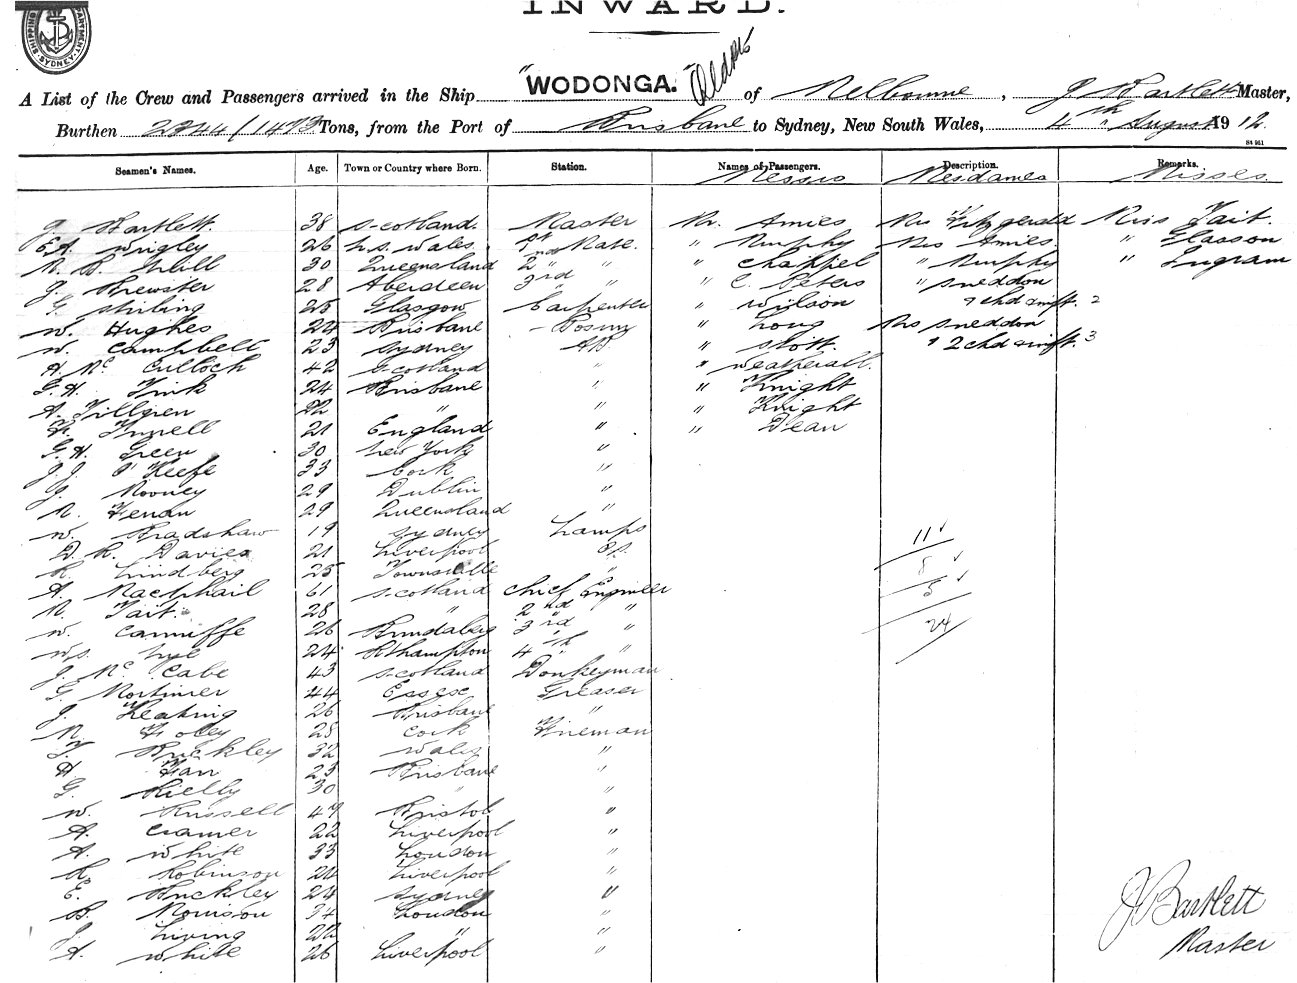 INWARD.
SHIPPING DEPARTMENT SYDNEY
A List of the Crew and Passengers arrived in the Ship "WODONGA." of Melbourne, J Bartlett Master,
Burthen 2344/1473 Tons, from the Port of Brisbane to Sydney, New South Wales, 4th August 1912.
Seamen's Names. Age. Town or Country where Born. Station. Names of Passengers. Description. Remarks.
Messrs Mesdames Misses.
J. Bartlett. 38 Scotland. Master Mr. Amies Mrs Fitzgerald Miss Tait.
E.A. Wrigley 26 N.S. Wales. 1st Mate. " Murphy Mrs Amies. " Glasson
30 Queensland 2nd " " Chappel " Murphy " Ingram
J. Brewster 28 Aberdeen 3rd " " C. Peters " Sneddon
G. Stirling 25 Glasgow Carpenter " Wilson & chd inft. 2
W. Hughes 24 Brisbane Bosun " Long Mrs Sneddon
W. Campbell 23 Sydney AB " Stott " 2 chd & inft. 3
A. McCulloch 42 Scotland " " Weatherall.
G.H. Fink 24 Brisbane " " Knight
A. Tillgren 22 " " " Knight
21 England " " Dean
G.H. Green 30 New York "
J.J. O'Keefe 33 Cork "
J. Rooney 29 Dublin "
29 Queensland "
W. Bradshaw 19 Sydney Lamps 11
D.R. Davies 21 Liverpool O.S.
R. Lindberg 25 Townsville " 5
A. Macphail 61 Scotland Chief Engineer
N. Tait. 28 " 2nd "
W. Canniffe 26 Bundaberg 3rd " 24
24 Rthampton 4th "
J. McCabe 43 Scotland Donkeyman
G. Mortimer 44 Essex Greaser
J. Keating 26 Brisbane "
M. Foley 25 Cork Fireman
T. Buckley 32 Wales "
H. Farr 23 Brisbane "
G. Rielly 30 " "
W. Russell 47 Bristol "
A. Cramer 22 Liverpool "
A. White 33 London "
R. Robinson 24 Liverpool "
E. Buckley 24 Sydney "
B. Morrison 34 London "
J. Living 22 " "
A. White 26 Liverpool "
J Bartlett
Master